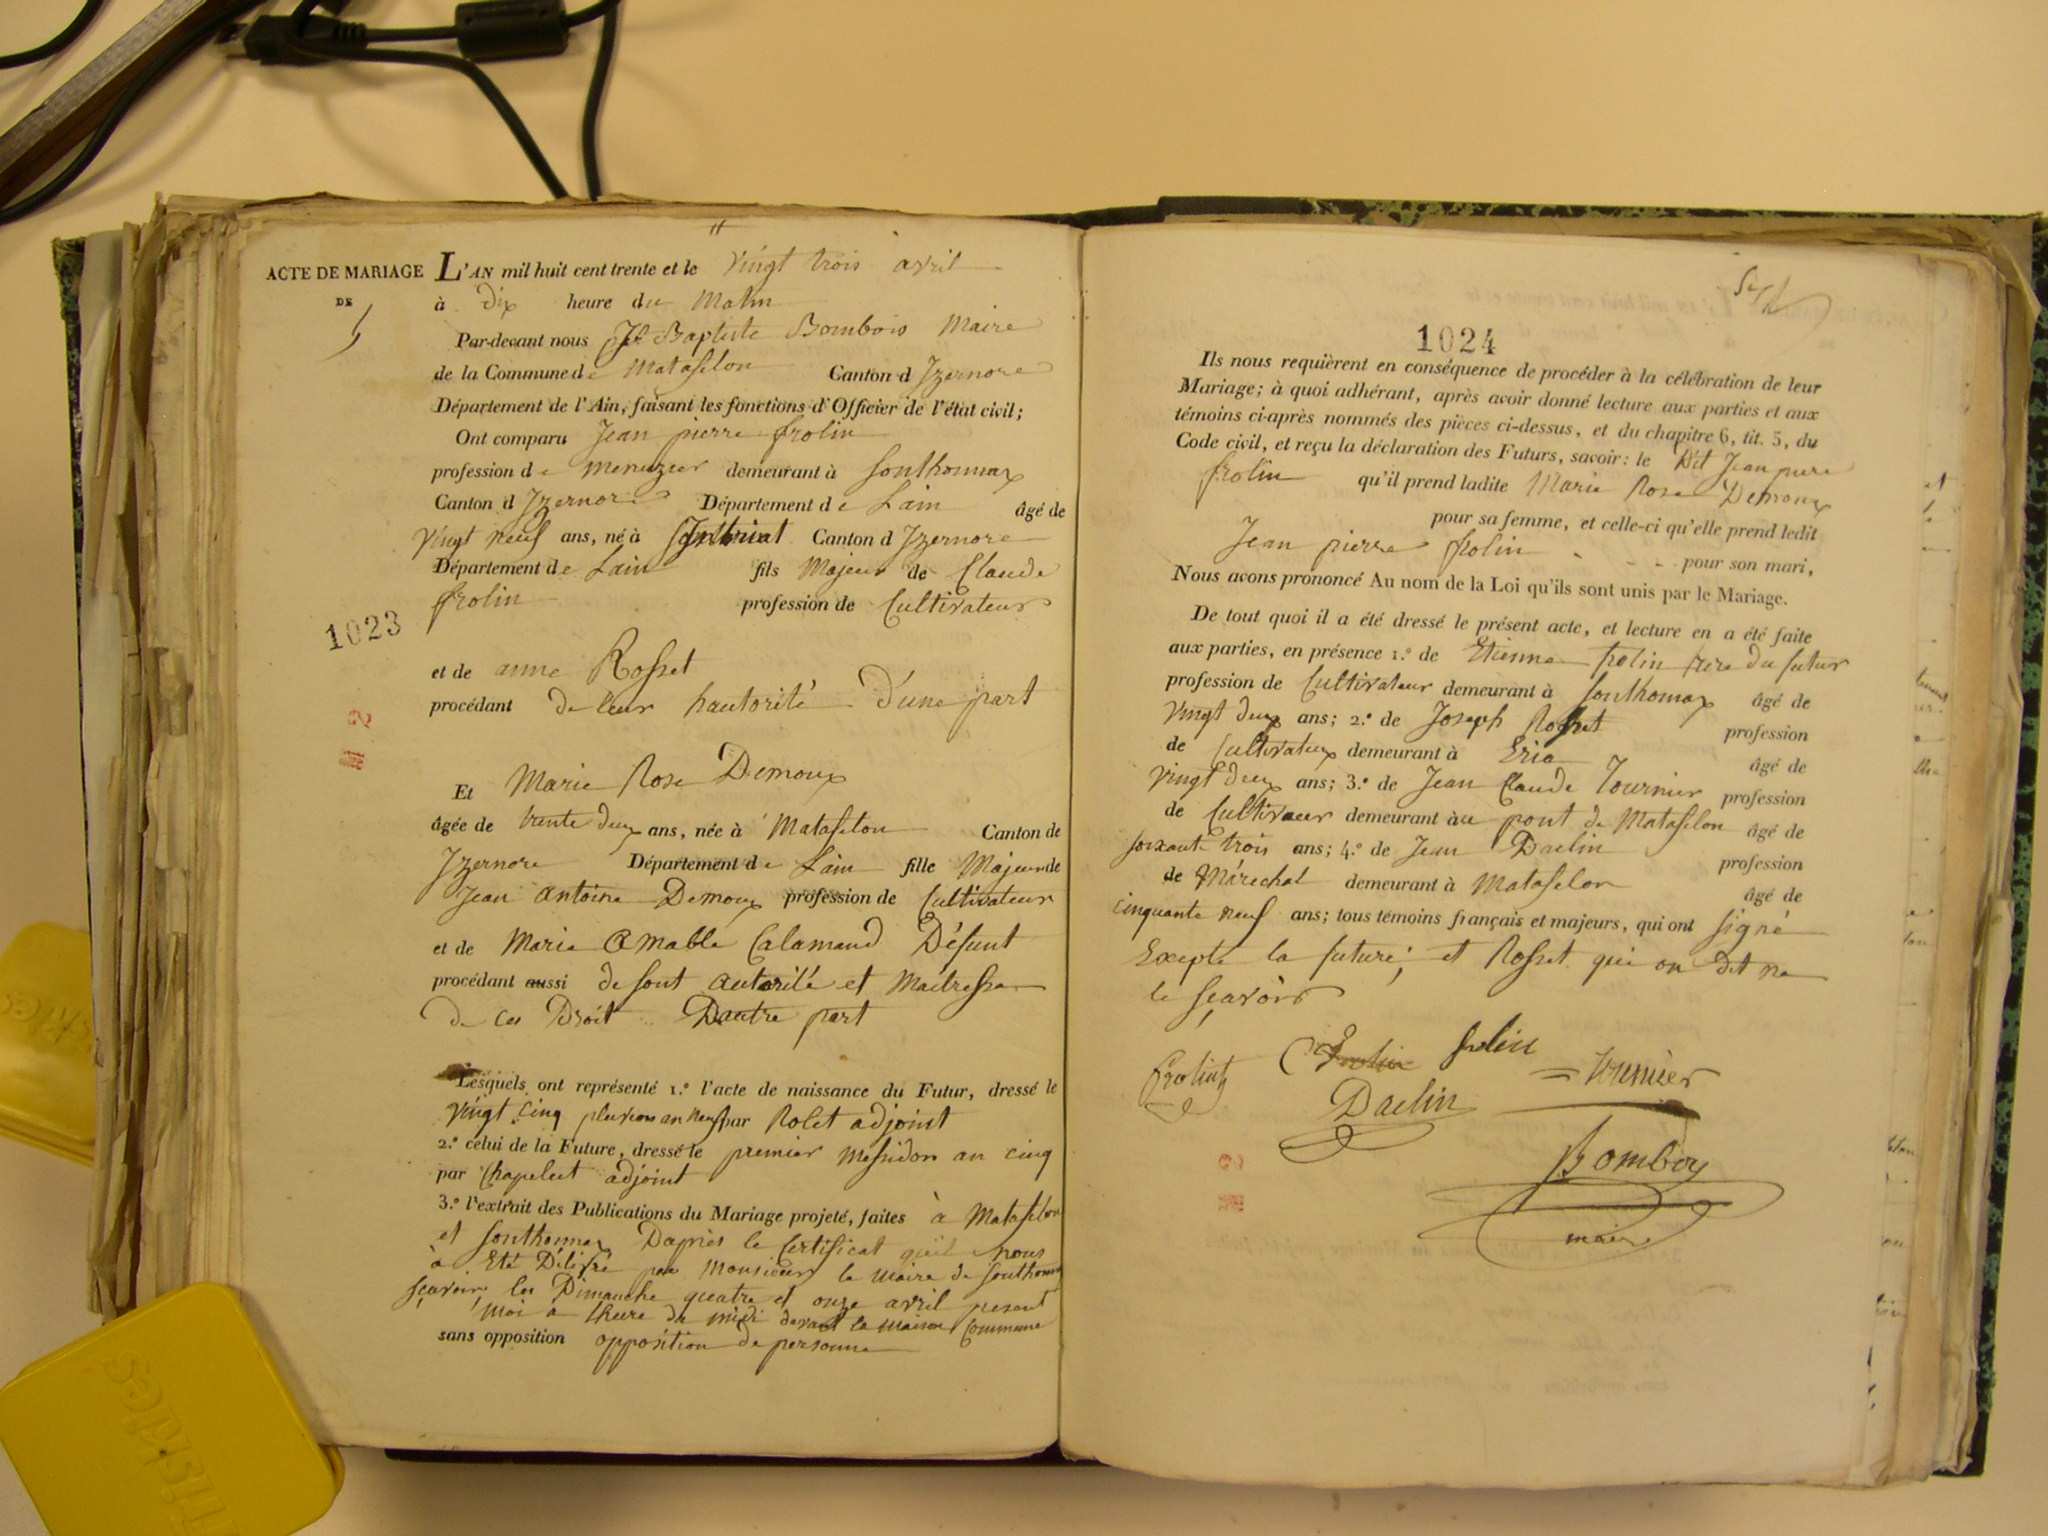 ACTE DE MARIAGE
DE
5
L'AN mil huit cent trente et le vingt trois avril
à dix heure du Matin
Par-devant nous Jn Baptiste Bombois Maire
de la Commune de Matafelon Canton d Izernore
Département de l'Ain, faisant les fonctions d'Officier de l'état civil;
Ont comparu Jean pierre frolin
profession de menuzier demeurant à Sonthonnax
Canton d Izernore Département de Lain âgé de
vingt neuf ans, né à Canton d Izernore
Département de Lain fils Majeur de Claude
frolin profession de Cultivateur
1023
et de anne Rosset
procédant de leur hautorité D'une part
Et Marie Rose Demoux
âgée de trente deux ans, née à Matafelon Canton de
Izernore Département de Lain fille Majeur de
Jean antoine Demoux profession de Cultivateur
et de Maria amable Calamand Défunt
procédant aussi de sont autorité et Maitresse
de ces Droit Dautre part
Lesquels ont représenté 1.º l'acte de naissance du Futur, dressé le
vingt cinq pluviose an neuf par Rolet adjoint
2.º celui de la Future, dressé le premier Messidor an cinq
par Chapelut adjoint
3.º l'extrait des Publications du Mariage projeté, faites à Matafelon
et Sonthonnax Daprès le Certificat qu'il nous
à Eté Délivré par Monsieur le Maire de Sonthonnax
sçavoir les Dimanche quatre et onze avril present
Moi à lheure de midi devant la maison Commune
sans opposition opposition de personne
1024
Ils nous requièrent en conséquence de procéder à la célébration de leur
Mariage; à quoi adhérant, après avoir donné lecture aux parties et aux
témoins ci-après nommés des pièces ci-dessus, et du chapitre 6, tit. 5, du
Code civil, et reçu la déclaration des Futurs, savoir: le Dit Jean pierre
frolin qu'il prend ladite Marie Rose Demoux
pour sa femme, et celle-ci qu'elle prend ledit
Jean pierre frolin pour son mari,
Nous avons prononcé Au nom de la Loi qu'ils sont unis par le Mariage.
De tout quoi il a été dressé le présent acte, et lecture en a été faite
aux parties, en présence 1.º de Etienne frolin frere du futur
profession de Cultivateur demeurant à Sonthonax âgé de
vingt deux ans; 2.º de Joseph Rosset profession
de Cultivateur demeurant à Eria âgé de
vingt deux ans; 3.º de Jean Claude Tournier profession
de Cultivateur demeurant au pont de Matafelon âgé de
soixante trois ans; 4.º de Jean Daelin profession
de Maréchal demeurant à Matafelon âgé de
cinquante neuf ans; tous témoins français et majeurs, qui ont signé
Excepte la future; et Rosset qui on dit ne
le sçavoir
frolin frolin Tournier
Daelin
Bomboy
maire